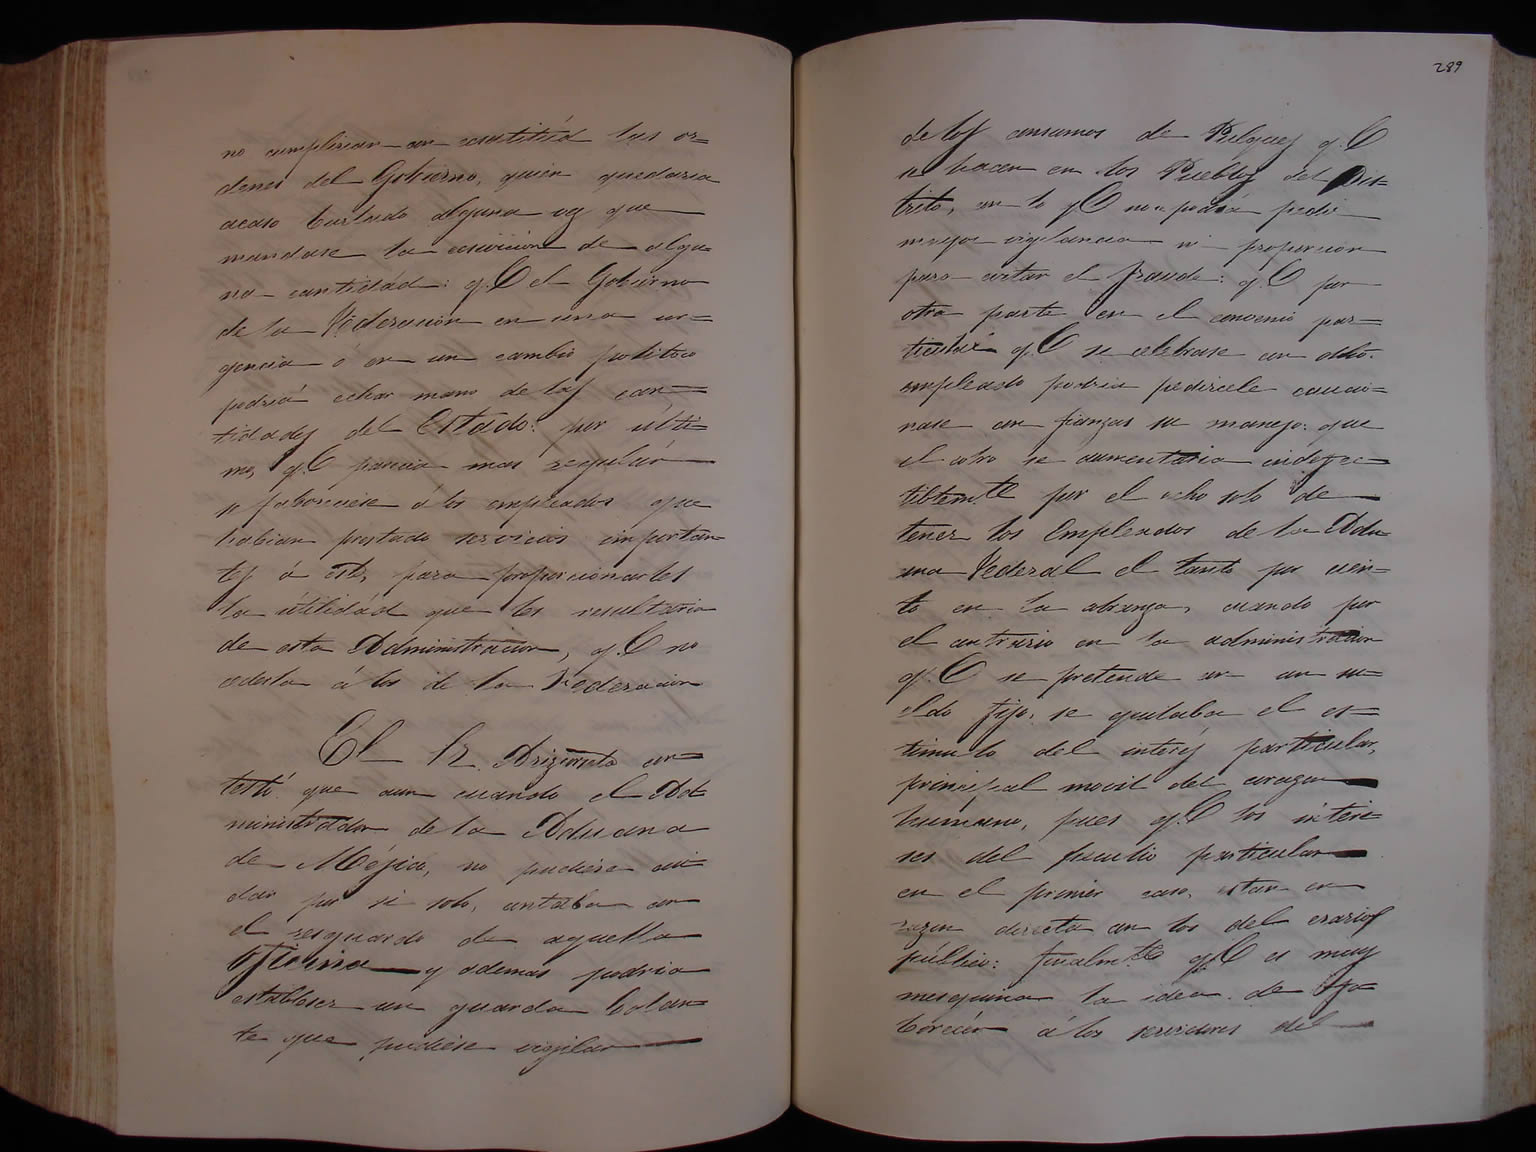 no cumplirian con exactitúd las or=
denes del Gobierno, quien quedaria
acaso burlado alguna vez que
mandase la esivicion de algu=
na cantidád: q.e el Gobierno
de la Federacion en una ur=
gencia ó en un cambio politico
podria echar mano de las can=
tidades del Estado: por ulti=
mo, q.e parecia mas regular
se faboreciese á los empleados que
habian prestado servicios importan=
tes á este, para proporcionarles
la útilidád que les resultaria
de esta Administracion, q.e no
cederla á los de la Federacion
El Sr. Arizcorreta con=
testó que aun cuando el Ad=
ministrador de la Aduana
de Méjico, no pudiese cui=
dar por si solo, contaba con
el resguardo de aquella
Oficina y ademas podria
establecer un guarda bolan=
te que pudiese vigilar
289
de los consumos de Pulques q.e
se hacen en los Pueblos del Dis=
trito, con lo q.e no se podrá pedir
mayor vigilancia ni proporcion
para evitar el fraude: q.e por
otra parte en el convenio par=
ticular q.e se celebrase con dcho.
empleado podria pedircele caucio=
nase con fianzas su manejo: que
el cobro se aumentaria indefec=
tiblem.te por el echo solo de
tener los Empleados de la Adu=
ana Federal el tanto por cien=
to en la cobranza, cuando por
el contrario en la administracion
q.e se pretende con un su=
eldo fijo, se quitaba el es=
timulo del interés particular,
principal movil del corazon
humano, pues q.e los intere=
ses del peculio particular
en el primer caso, estan en
razon directa con los del erario
público: finalm.te q.e es muy
mesquina la idea de fa=
borecer á los servidores del